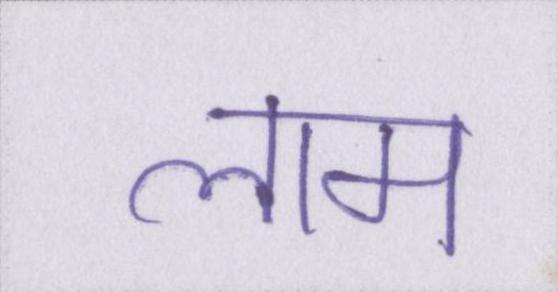 लाम